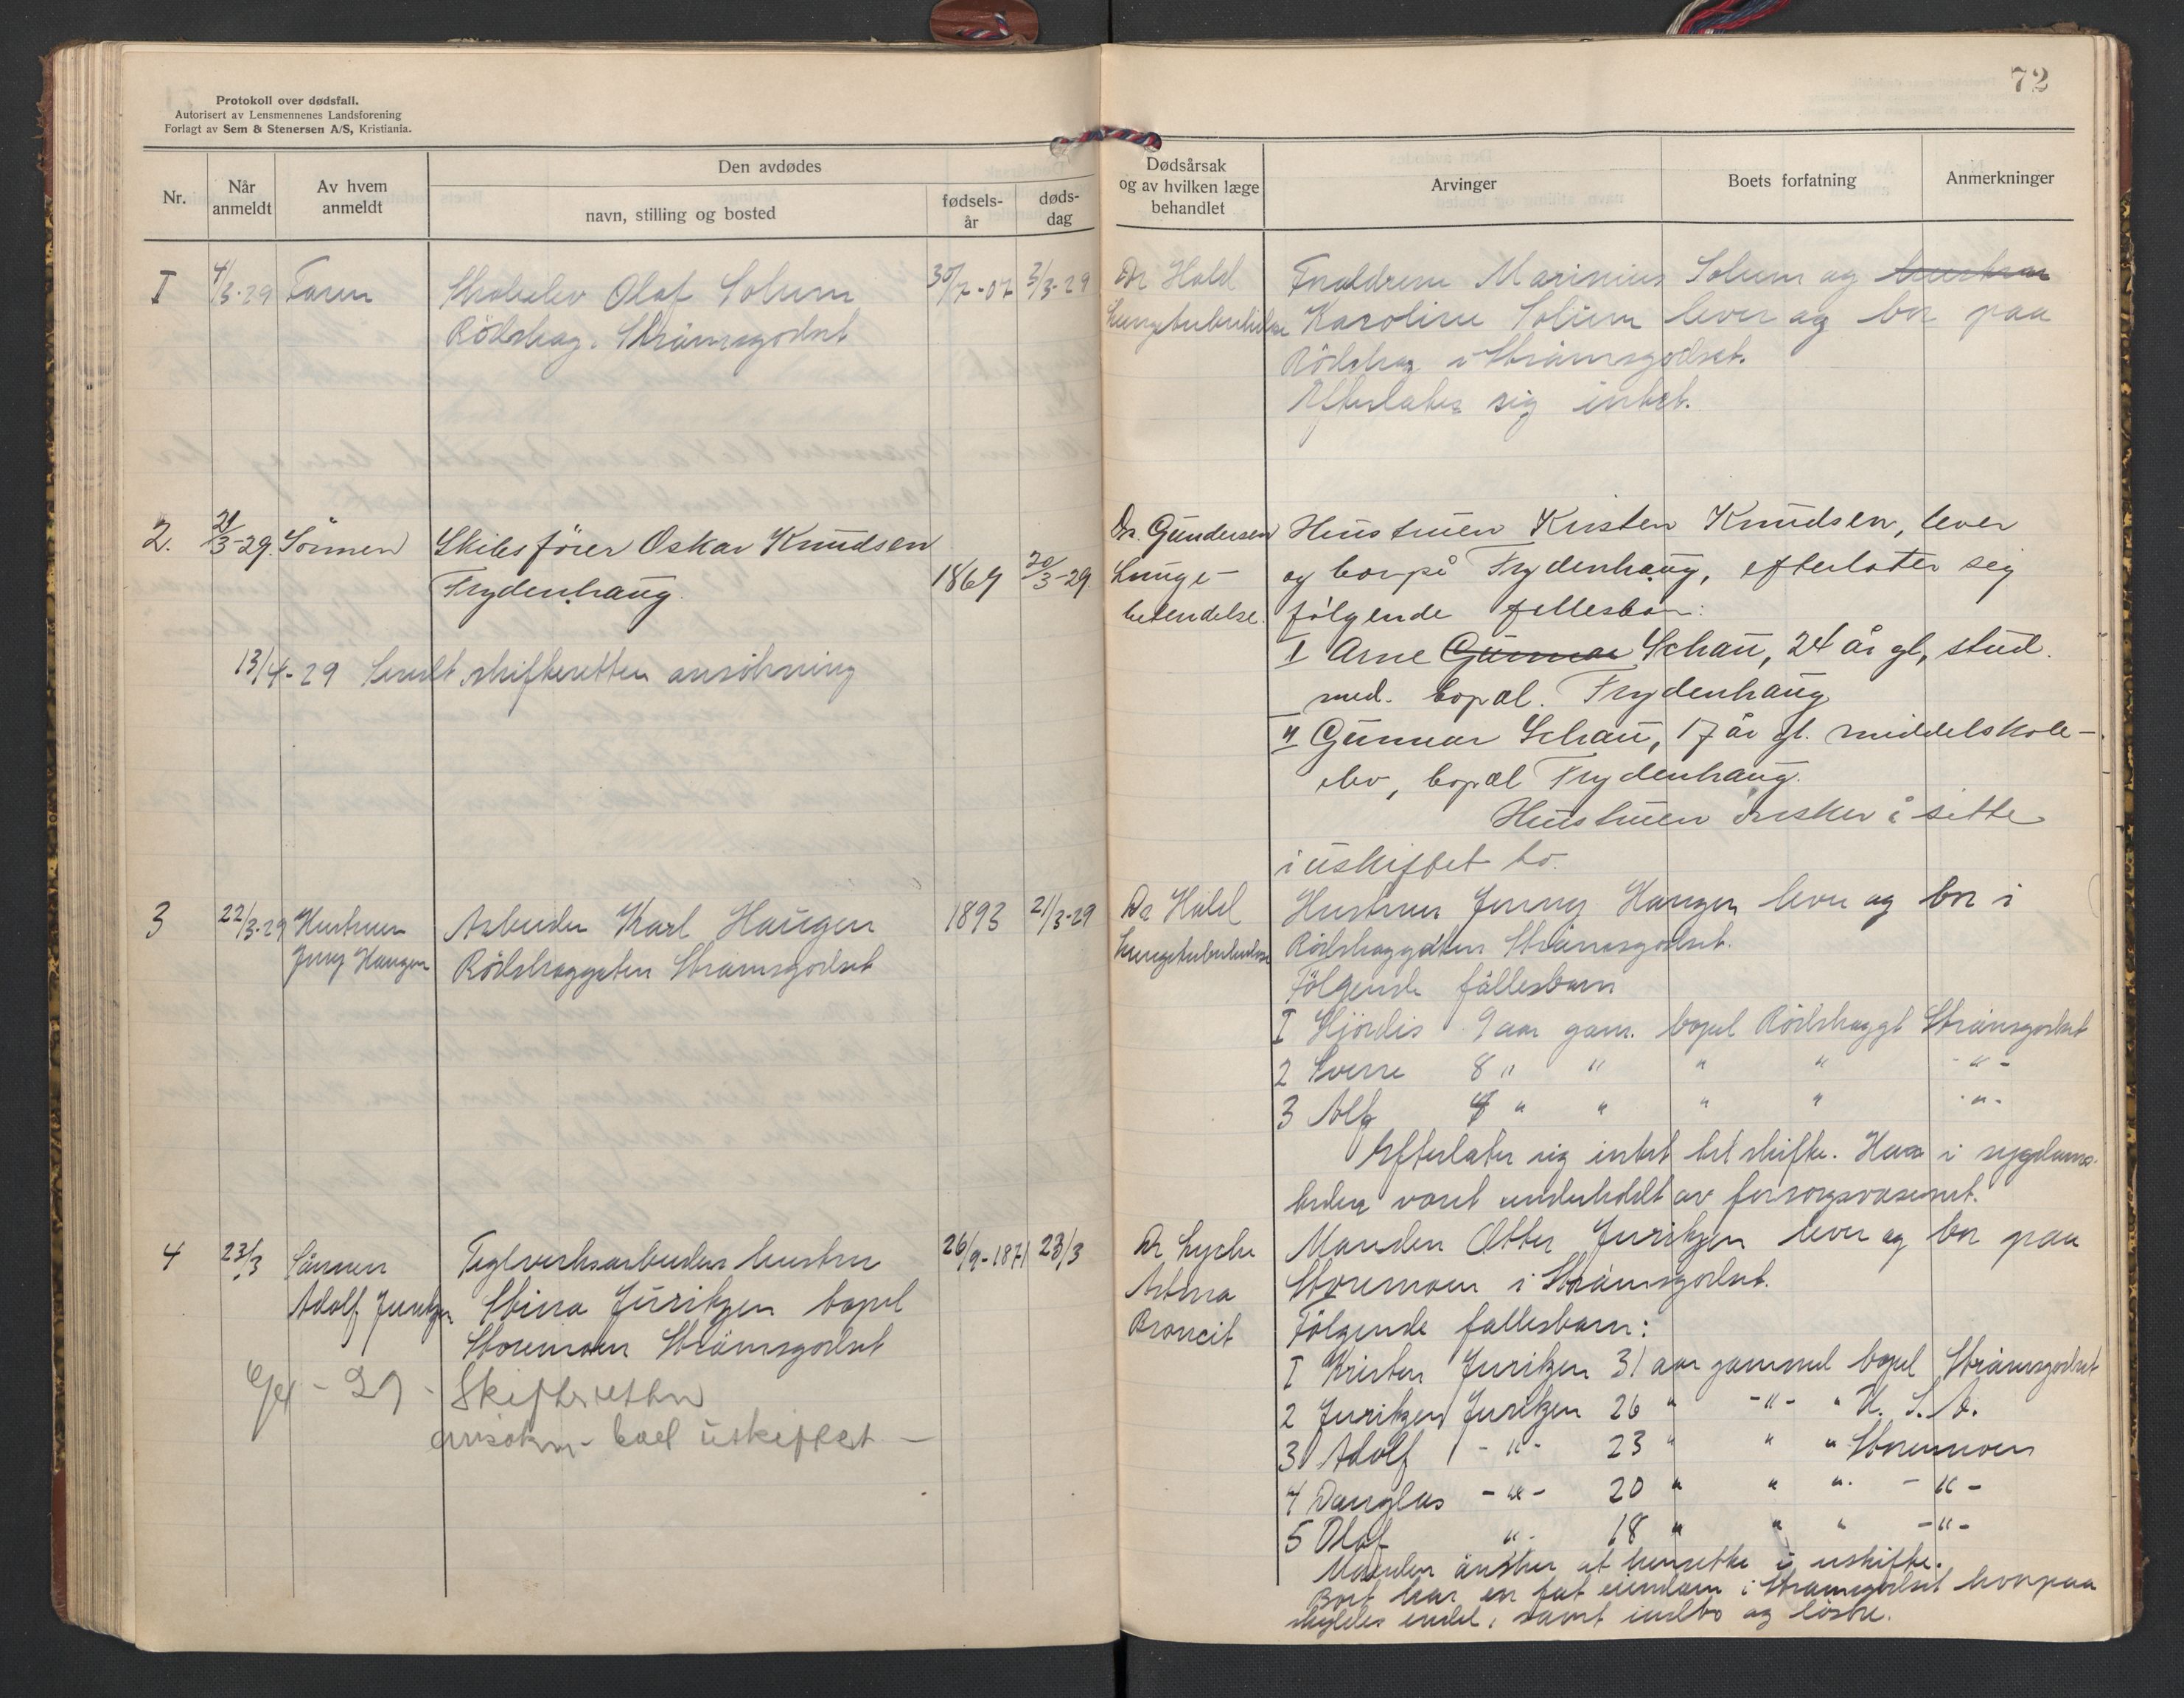 72
Protokoll over dødsfall.
Autorisert av Lensmennenes Landsforening
Forlagt av Sem & Stenersen A/S, Kristiania.
Nr.
Når anmeldt
Av hvem anmeldt
Den avdødes
navn, stilling og bosted
fødsels-år
døds-dag
Dødsårsak og av hvilken læge behandlet
Arvinger
Boets forfatning
Anmerkninger
I 4/3-29 Faren Olaf Solum 30/7-07 3/3-29
Rödskog. Strömsgodset
Dr Hald
Lungetuberkulose
Foreldrene Marinius Solum og hustru
Karoline Solum lever og bor paa
Rödskog i Strömsgodset.
Efterlater sig intet.
2. 21/3-29. Sönnen Skibsförer Oskar Knudsen
Frydenhaug. 1869 20/3-29
13/4-29 Sendt skifteretten ansökning
Dr. Gundersen
Lunge-
betendelse.
Hustruen Kristen Knudsen, lever
og bor på Frydenhaug, efterlater sig
følgende fellesbarn:
I Arne Gunnar Schau, 24 år gl, stud.
med. bopæl. Frydenhaug
II Gunnar Schau, 17 år gl. middelskole-
elev, bopæl Frydenhaug.
Hustruen ønsker å sitte
i uskiftet bo.
3 22/3-29 Hustruen Arbeider Karl Haugen 1893 21/3-29
Jenny Haugen Rödskoggaten Strömsgodset
Dr Hald
Lungetuberkulose
Hustruen Jenny Haugen lever og bor i
Rödskoggaten Strömsgodset.
Fölgende fællesbarn
I Hjördis 9 aar gam. bopel Rödskoggt Strömsgodset
2 Sverre 8 " " " " - " -
3 Alf " " " " - " -
Efterlater sig intet til skifte. Har i sygdoms-
tiden været underholdt av forsorgsvæsenet.
4 23/3 Sönnen Teglverksarbeider hustru 26/9-1871 23/3
Adolf Juritzen Stina Juritzen bopel
Storemoen Strömsgodset
- 29 - Skifteretten
ansökn - boet uskiftet -
Dr Lyche
Astma
Broncit
Manden Otter Juritzen lever og bor paa
Storemoen i Strömsgodset.
Fölgende fællesbarn:
I Kristen Juritzen 31 aar gammel bopel Strömsgodset
2 Juritzen Juritzen 26 " - " - " U. S. A.
3 Adolf - " - 23 " " " Storemoen
4 Douglas - " - 20 " " " - " -
5 Olaf " - 18 " " " - " -
Manden önsker at hensitte i uskifte.
Boet har en fast eiendom i Strömsgodset hvorpaa
skyldes endel, samt indbo og lösöre.